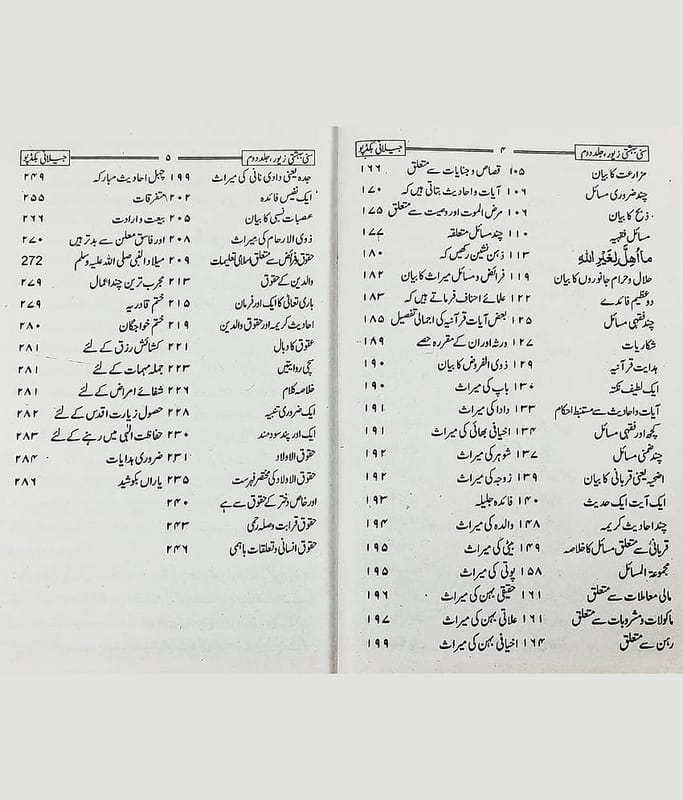 سنی بہشتی زیور، جلد دوم ۴ جیلانی بکڈپو
مزارعت کا بیان ۱۰۵
چند ضروری مسائل ۱۰۶
ذبح کا بیان ۱۰۶
مسائل فقہیہ ۱۱۰
مااُھِلَّ لِغَیْرِ اللہِ ۱۱۳
حلال و حرام جانوروں کا بیان ۱۱۹
دو عظیم فائدے ۱۲۲
چند فقہی مسائل ۱۲۵
شکاریات ۱۲۷
ہدایت قرآنیہ ۱۲۹
ایک لطیف نکتہ ۱۳۰
آیات و احادیث سے مستنبط احکام ۱۳۳
کچھ اور فقہی مسائل ۱۳۴
چند ضمنی مسائل ۱۳۷
اضحیہ یعنی قربانی کا بیان ۱۳۹
ایک آیت ایک حدیث ۱۴۰
چند احادیث کریمہ ۱۴۸
قربانی سے متعلق مسائل کا خلاصہ ۱۴۹
مجموعۃ المسائل ۱۵۸
مالی معاملات سے متعلق ۱۶۱
ماکولات و مشروبات سے متعلق ۱۶۱
رہن سے متعلق ۱۶۴
قصاص و جنایات سے متعلق ۱۶۶
آیات و احادیث بتاتی ہیں کہ ۱۷۰
مرض الموت اور وصیت سے متعلق ۱۷۵
چند مسائل متعلقہ ۱۷۷
ذہن نشین رکھیں کہ ۱۸۰
فرائض و مسائل میراث کا بیان ۱۸۲
علمائے احناف فرماتے ہیں کہ ۱۸۳
بعض آیات قرآنیہ کی اجمالی تفصیل ۱۸۵
ورثہ اور ان کے مقررہ حصے ۱۸۹
ذوی الفروض کا بیان ۱۹۰
باپ کی میراث ۱۹۰
دادا کی میراث ۱۹۱
اخیافی بھائی کی میراث ۱۹۱
شوہر کی میراث ۱۹۲
زوجہ کی میراث ۱۹۲
فائدہ جلیلہ ۱۹۳
والدہ کی میراث ۱۹۴
بیٹی کی میراث ۱۹۵
پوتی کی میراث ۱۹۵
حقیقی بہن کی میراث ۱۹۶
علاتی بہن کی میراث ۱۹۷
اخیافی بہن کی میراث ۱۹۹
سنی بہشتی زیور، جلد دوم ۵ جیلانی بکڈپو
جدہ یعنی دادی نانی کی میراث ۱۹۹
ایک نفیس فائدہ ۲۰۲
عصبات نسبی کا بیان ۲۰۵
ذوی الارحام کی میراث ۲۰۸
حقوق و فرائض سے متعلق اسلامی تعلیمات ۲۰۹
والدین کے حقوق ۲۱۳
باری تعالیٰ کا ایک اور فرمان ۲۱۵
احادیث کریمہ اور حقوق والدین ۲۱۹
عقوق کا وبال ۲۲۱
سچی روایتیں ۲۲۳
خلاصہ کلام ۲۲۶
ایک ضروری تنبیہ ۲۲۸
ایک اور پند سودمند ۲۳۰
حقوق الاولاد ۲۳۱
حقوق الاولاد کی مختصر فہرست ۲۳۵
اور خاص دختر کے حقوق سے ہے ۲۴۰
حقوق قرابت و صلہ رحمی ۲۴۳
حقوق انسانی و تعلقات باہمی ۲۴۶
چہل احادیث مبارکہ ۲۴۹
متفرقات ۲۵۵
بیعت و ارادت ۲۶۶
اور فاسق معلن سے بدتر ہیں ۲۷۰
میلاد النبی صلی اللہ علیہ وسلم 272
مجرب ترین چند اعمال ۲۷۹
ختم قادریہ ۲۷۹
ختم خواجگان ۲۸۰
کشائش رزق کے لئے ۲۸۱
جملہ مہمات کے لئے ۲۸۱
شفائے امراض کے لئے ۲۸۱
حصول زیارت اقدس کے لئے ۲۸۲
حفاظت الٰہی میں رہنے کے لئے ۲۸۳
ضروری ہدایات ۲۸۴
یاراں بکوشید ۲۸۶